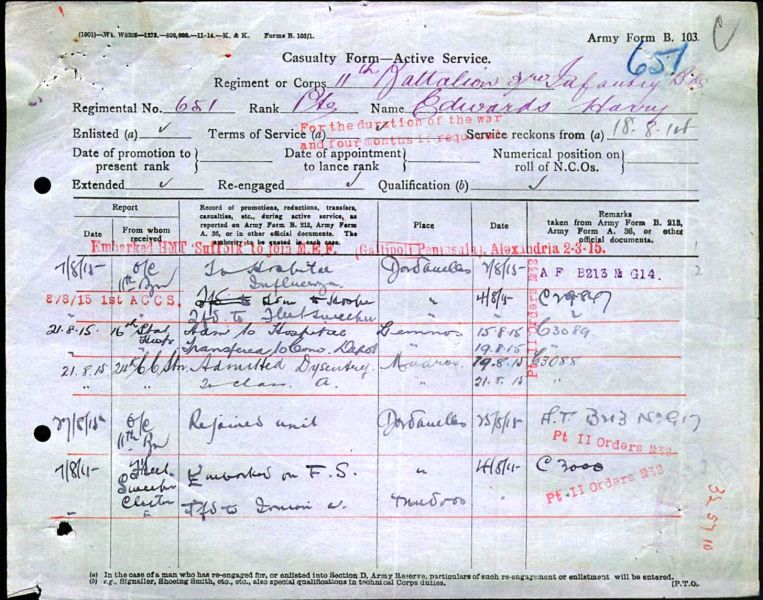 (1901)—Wt. W8206—1278.—500,000.—11-14.—K. & K. Forms B. 103/1.
Army Form B. 103.
C
651
Casualty Form—Active Service.
Regiment or Corps 11th Battalion 3rd Infantry Bde
Regimental No. 651 Rank Pte Name Edwards Harry
For the duration of the war
and four months if required
Enlisted (a) Terms of Service (a) Service reckons from (a) 18.8.14
Date of promotion to present rank
Date of appointment to lance rank
Numerical position on roll of N.C.Os.
Extended Re-engaged Qualification (b)
Report
Date
From whom received
Record of promotions, reductions, transfers, casualties, etc., during active service, as reported on Army Form B. 213, Army Form A. 36, or in other official documents. The authority to be quoted in each case.
Place
Date
Remarks
taken from Army Form B. 213, Army Form A. 36, or other official documents.
Embarked HMT 'Suffolk to join M.E.F. (Gallipoli Peninsula), Alexandria 2-3-15.
7/8/15 O/C 11th Bn To Hospital Influenza Dardanelles 2/8/15 A F B213 No G14.
8/8/15 1st A C C S. Adm to Hospl " 4/8/15
Tfd to Fleetsweeper "
21.8.15 16th Stat Adm to Hospital Lemnos 15.8.15 C3089
" Transferred to Conv. Depot 19.8.15
21.8.15 Admitted Dysentery Mudros 19.8.15 C3088
" To class. A. " 21.8.15 "
Pt II Orders
27/8/15 O/C 11th Bn Rejoined unit Dardanelles 25/8/15 B213 No G17
Pt II Orders
7/8/15 Fleet Sweeper Embarked on F.S. " 4/8/15 C 3000
Pt II Orders
" Tfd to Mudros "
(a) In the case of a man who has re-engaged for, or enlisted into Section D, Army Reserve, particulars of such re-engagement or enlistment will be entered.
(b) e.g., Signaller, Shoeing Smith, etc., etc., also special qualifications in technical Corps duties. [P.T.O.